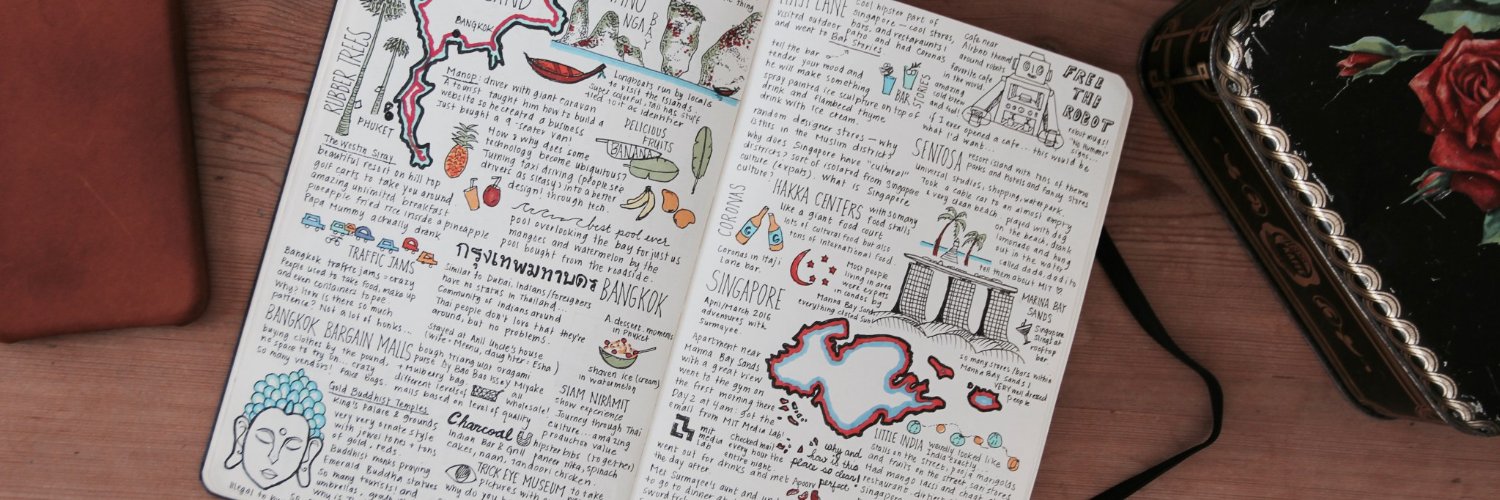 BANGKOK
RUBBER TREES
PHUKET
Manop: driver with giant caravan
A tourist taught him how to build a
website so he created a business
Just bought a 9 seater van!
How & why does some
technology become ubiquitous?
Turning taxi driving (people see
drivers as sleasy) into a better
design! through tech.
Longboats run by locals
to visit the islands.
super colorful, tail has stuff
tied to it as identifier
DELICIOUS
FRUITS
BANANA
The Westin Siray
beautiful resort on hill top
golf carts to take you around
amazing unlimited breakfast
Pineapple fried rice inside a pineapple
Papa Mummy actually drank
best pool ever
pool overlooking the bay for just us
mangoes and watermelon by the
pool bought from the roadside.
TRAFFIC JAMS
Bangkok traffic jams = crazy
People used to take food, make up
and even containers to pee
Why? how is there so much
patience? Not a lot of honks...
BANGKOK
Similar to Dubai, Indians/foreigners
have no status in Thailand...
Communities of Indians around
Thai people don't love that they're
around, but no problems.
stayed at Anil Uncle's house
(wife: Meenu, daughter: Esha)
A dessert moment
in Phuket
shaven ice (cream)
in watermelon
BANGKOK BARGAIN MALLS
buying clothes by the pound,
no space to try on, crazy
so many vendors! fake bags.
bought triangular origami
purse by Bao Bao Issey Miyake
+ Mulberry bag, all
different levels of wholesale!
malls based on level of quality
Gold Buddhist Temples
King's Palace & grounds
very ornate style
with jewel tones + tons
of gold, reds.
Buddhist monks praying
Emerald Buddha statues
so many tourists! and
SIAM NIRAMIT
show experience
Journey through Thai
culture... amazing
production value
Charcoal
Indian Bar & Grill
hipster bibs (together)
paneer tika, spinach
cakes, naan, tandoori chicken.
TRICK EYE MUSEUM to take
pictures with
cool hipster part of
Singapore — cool stores,
bars, and restaraunts!
visited outdoor patio and had Coronas
and went to Bar Stories
tell the bar
tender your mood and
he will make something
spray painted ice sculpture on top of
drink and flambeed thyme
drink with ice cream.
BAR
STORIES
Cafe near
Airbnb themed
around robots
favorite cafe
in the world.
amazing
cold brew
and had
what I'd want...
if I ever opened a cafe... this would be
FREE
THE
ROBOT
robot mugs!
"No humans"
signs...
random designer stores — why
is this in the Muslim district?
why does Singapore have "cultural"
districts? sort of isolated from Singapore
culture (expats). What is Singapore
culture?
SENTOSA resort island with tons of theme
parks and hotels and fancy stores
universal studios, shopping, waterpark.
Took a cable car to an almost empty
& very clean beach, played with dog
on the beach, drank
lemonade and hung
out in the water
called dada dadi to
tell them about MIT ♡
CORONAS
Coronas in Haji
Lane bar.
HAKKA CENTERS with so many
like a giant food court food stalls
lots of cultural food but also
tons of international food
Most people
living in area
were expats
in condos by
Marina Bay Sands
everything closed
MARINA BAY
SANDS
Singapore
Slings at
rooftop
bar
so many stores/bars within
Marina Bay Sands!
VERY well dressed
people
SINGAPORE
April/March 2016
adventures with
Surmayee.
Apartment near
Marina Bay Sands
with a great view
went to the gym on
the first morning there
Day 2 at 4am: got the
email from MIT Media Lab!
mit
media
lab
checked mail
every hour the
entire night
went out for drinks and met Apoorv
the day after.
Met Surmayee's aunt and
to go to dinner at
why and
how is this
place so clean/
perfect?
LITTLE INDIA weirdly looked like
India exactly...
stalls on the street, pooja
and fruits on the street
Had mango lassi and chaat
restaurant